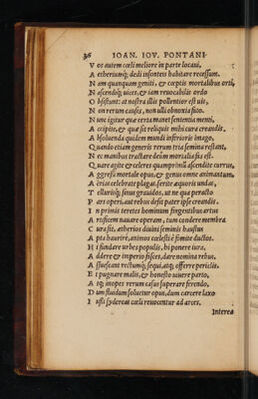 36 IOAN. IOV. PONTANI
V os autem cœli meliore in parte locaui,
A etheriumq; dedi insontes habitare recessum.
N am quanquam geniti, & cœptis mortalibus orti,
N ascendiq; uices, & iam reuocabilis ordo
O bsistunt: at nostra illis pollentior est uis,
N on rerum causis, non ulli obnoxia fato.
N unc igitur quæ certa manet sententia menti,
A ccipite, & quæ sit reliquis mihi cura creandis.
A bsoluenda quidem mundi inferioris imago,
Q uando etiam generis rerum tria semina restant,
N ec manibus tractare deûm mortalia fas est.
Q uare agite & celeres quamprimũ ascendite currus,
A ggressi mortale opus, & genus omne animantum.
A erias celebrate plagas, ferite æquoris undas,
T ellurisq; sinus grauidos, ut ne qua peracto
P ars operi, aut rebus desit pater ipse creandis.
I n primis teretes hominum fingentibus artus
A rtificem nauare operam, tum condere membra
C ura sit, ætherios diuini seminis haustus
A pta haurire, animos cœlesti è fomite ductos.
H i fundare urbes populis, hi ponere iura,
A ddere & imperio fasces, dare nomina rebus.
A ssuescant rectumq; sequi, atq; offerre periclis.
E t pugnare malis, & honesto uiuere parto,
A tq; inopes rerum casus superare ferendo,
D um fluidum soluetur opus, dum carcere laxo
I ussi sydereas cœli reuocentur ad arces.
Interea